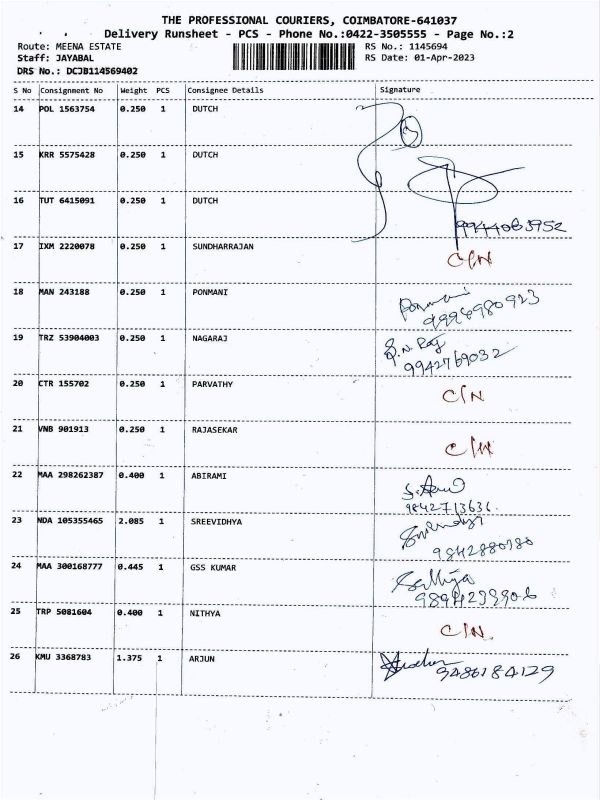 THE PROFESSIONAL COURIERS, COIMBATORE-641037
Delivery Runsheet - PCS - Phone No.:0422-3505555 - Page No.:2
Route: MEENA ESTATE RS No.: 1145694
Staff: JAYABAL RS Date: 01-Apr-2023
DRS No.: DCJB114569402
S No Consignment No Weight PCS Consignee Details Signature
14 POL 1563754 0.250 1 DUTCH
15 KRR 5575428 0.250 1 DUTCH
16 TUT 6415091 0.250 1 DUTCH
17 IXM 2220078 0.250 1 SUNDHARRAJAN C/N
18 MAN 243188 0.250 1 PONMANI Ponmani
9994980923
19 TRZ 53904003 0.250 1 NAGARAJ
9942769032
20 CTR 155702 0.250 1 PARVATHY C/N
21 VNB 901913 0.250 1 RAJASEKAR C/N
22 MAA 298262387 0.400 1 ABIRAMI
9842713631
23 NDA 105355465 2.085 1 SREEVIDHYA
9842880780
24 MAA 300168777 0.445 1 GSS KUMAR
25 TRP 5081604 0.400 1 NITHYA C/N.
26 KMU 3368783 1.375 1 ARJUN
9486184129